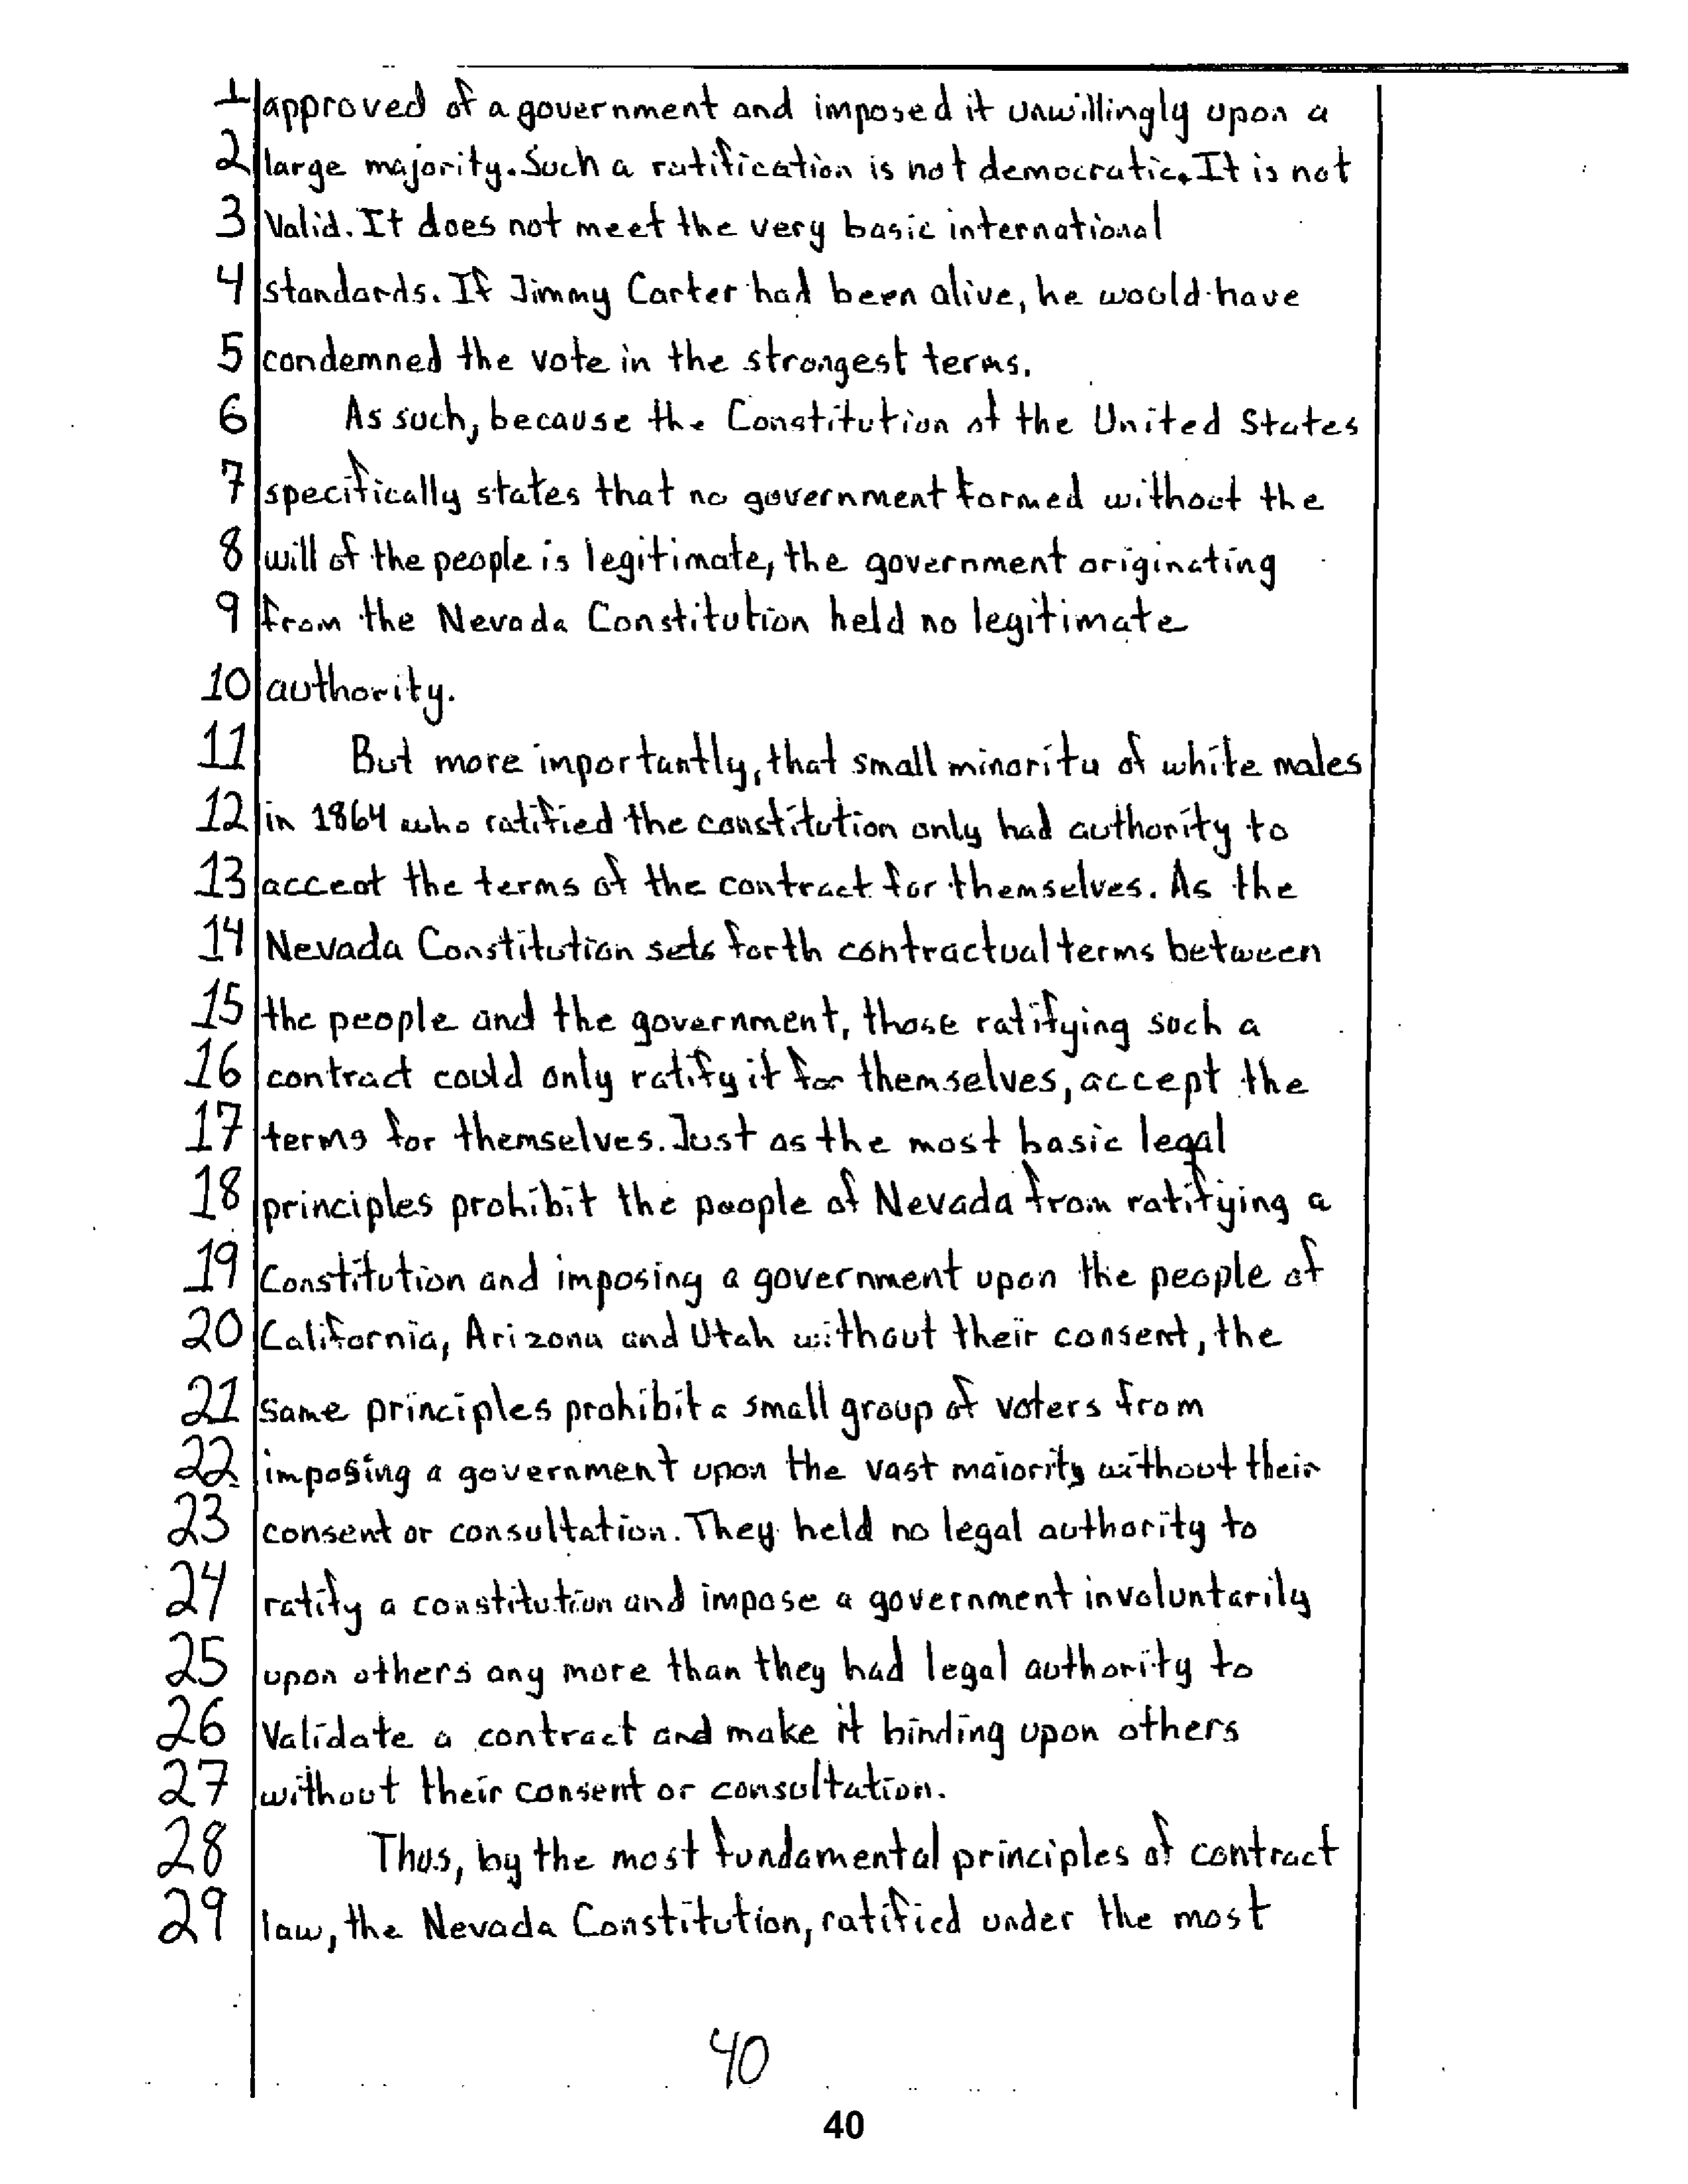 1 approved of a government and imposed it unwillingly upon a
2 large majority. Such a ratification is not democratic. It is not
3 Valid. It does not meet the very basic international
4 standards. If Jimmy Carter had been alive, he would have
5 condemned the vote in the strongest terms.
6 As such, because the Constitution of the United States
7 specifically states that no government formed without the
8 will of the people is legitimate, the government originating
9 from the Nevada Constitution held no legitimate
10 authority.
11 But more importantly, that small minority of white males
12 in 1864 who ratified the constitution only had authority to
13 accept the terms of the contract for themselves. As the
14 Nevada Constitution sets forth contractual terms between
15 the people and the government, those ratifying such a
16 contract could only ratify it for themselves, accept the
17 terms for themselves. Just as the most basic legal
18 principles prohibit the people of Nevada from ratifying a
19 Constitution and imposing a government upon the people of
20 California, Arizona and Utah without their consent, the
21 same principles prohibit a small group of voters from
22 imposing a government upon the vast majority without their
23 consent or consultation. They held no legal authority to
24 ratify a constitution and impose a government involuntarily
25 upon others any more than they had legal authority to
26 Validate a contract and make it binding upon others
27 without their consent or consultation.
28 Thus, by the most fundamental principles of contract
29 law, the Nevada Constitution, ratified under the most
40
40